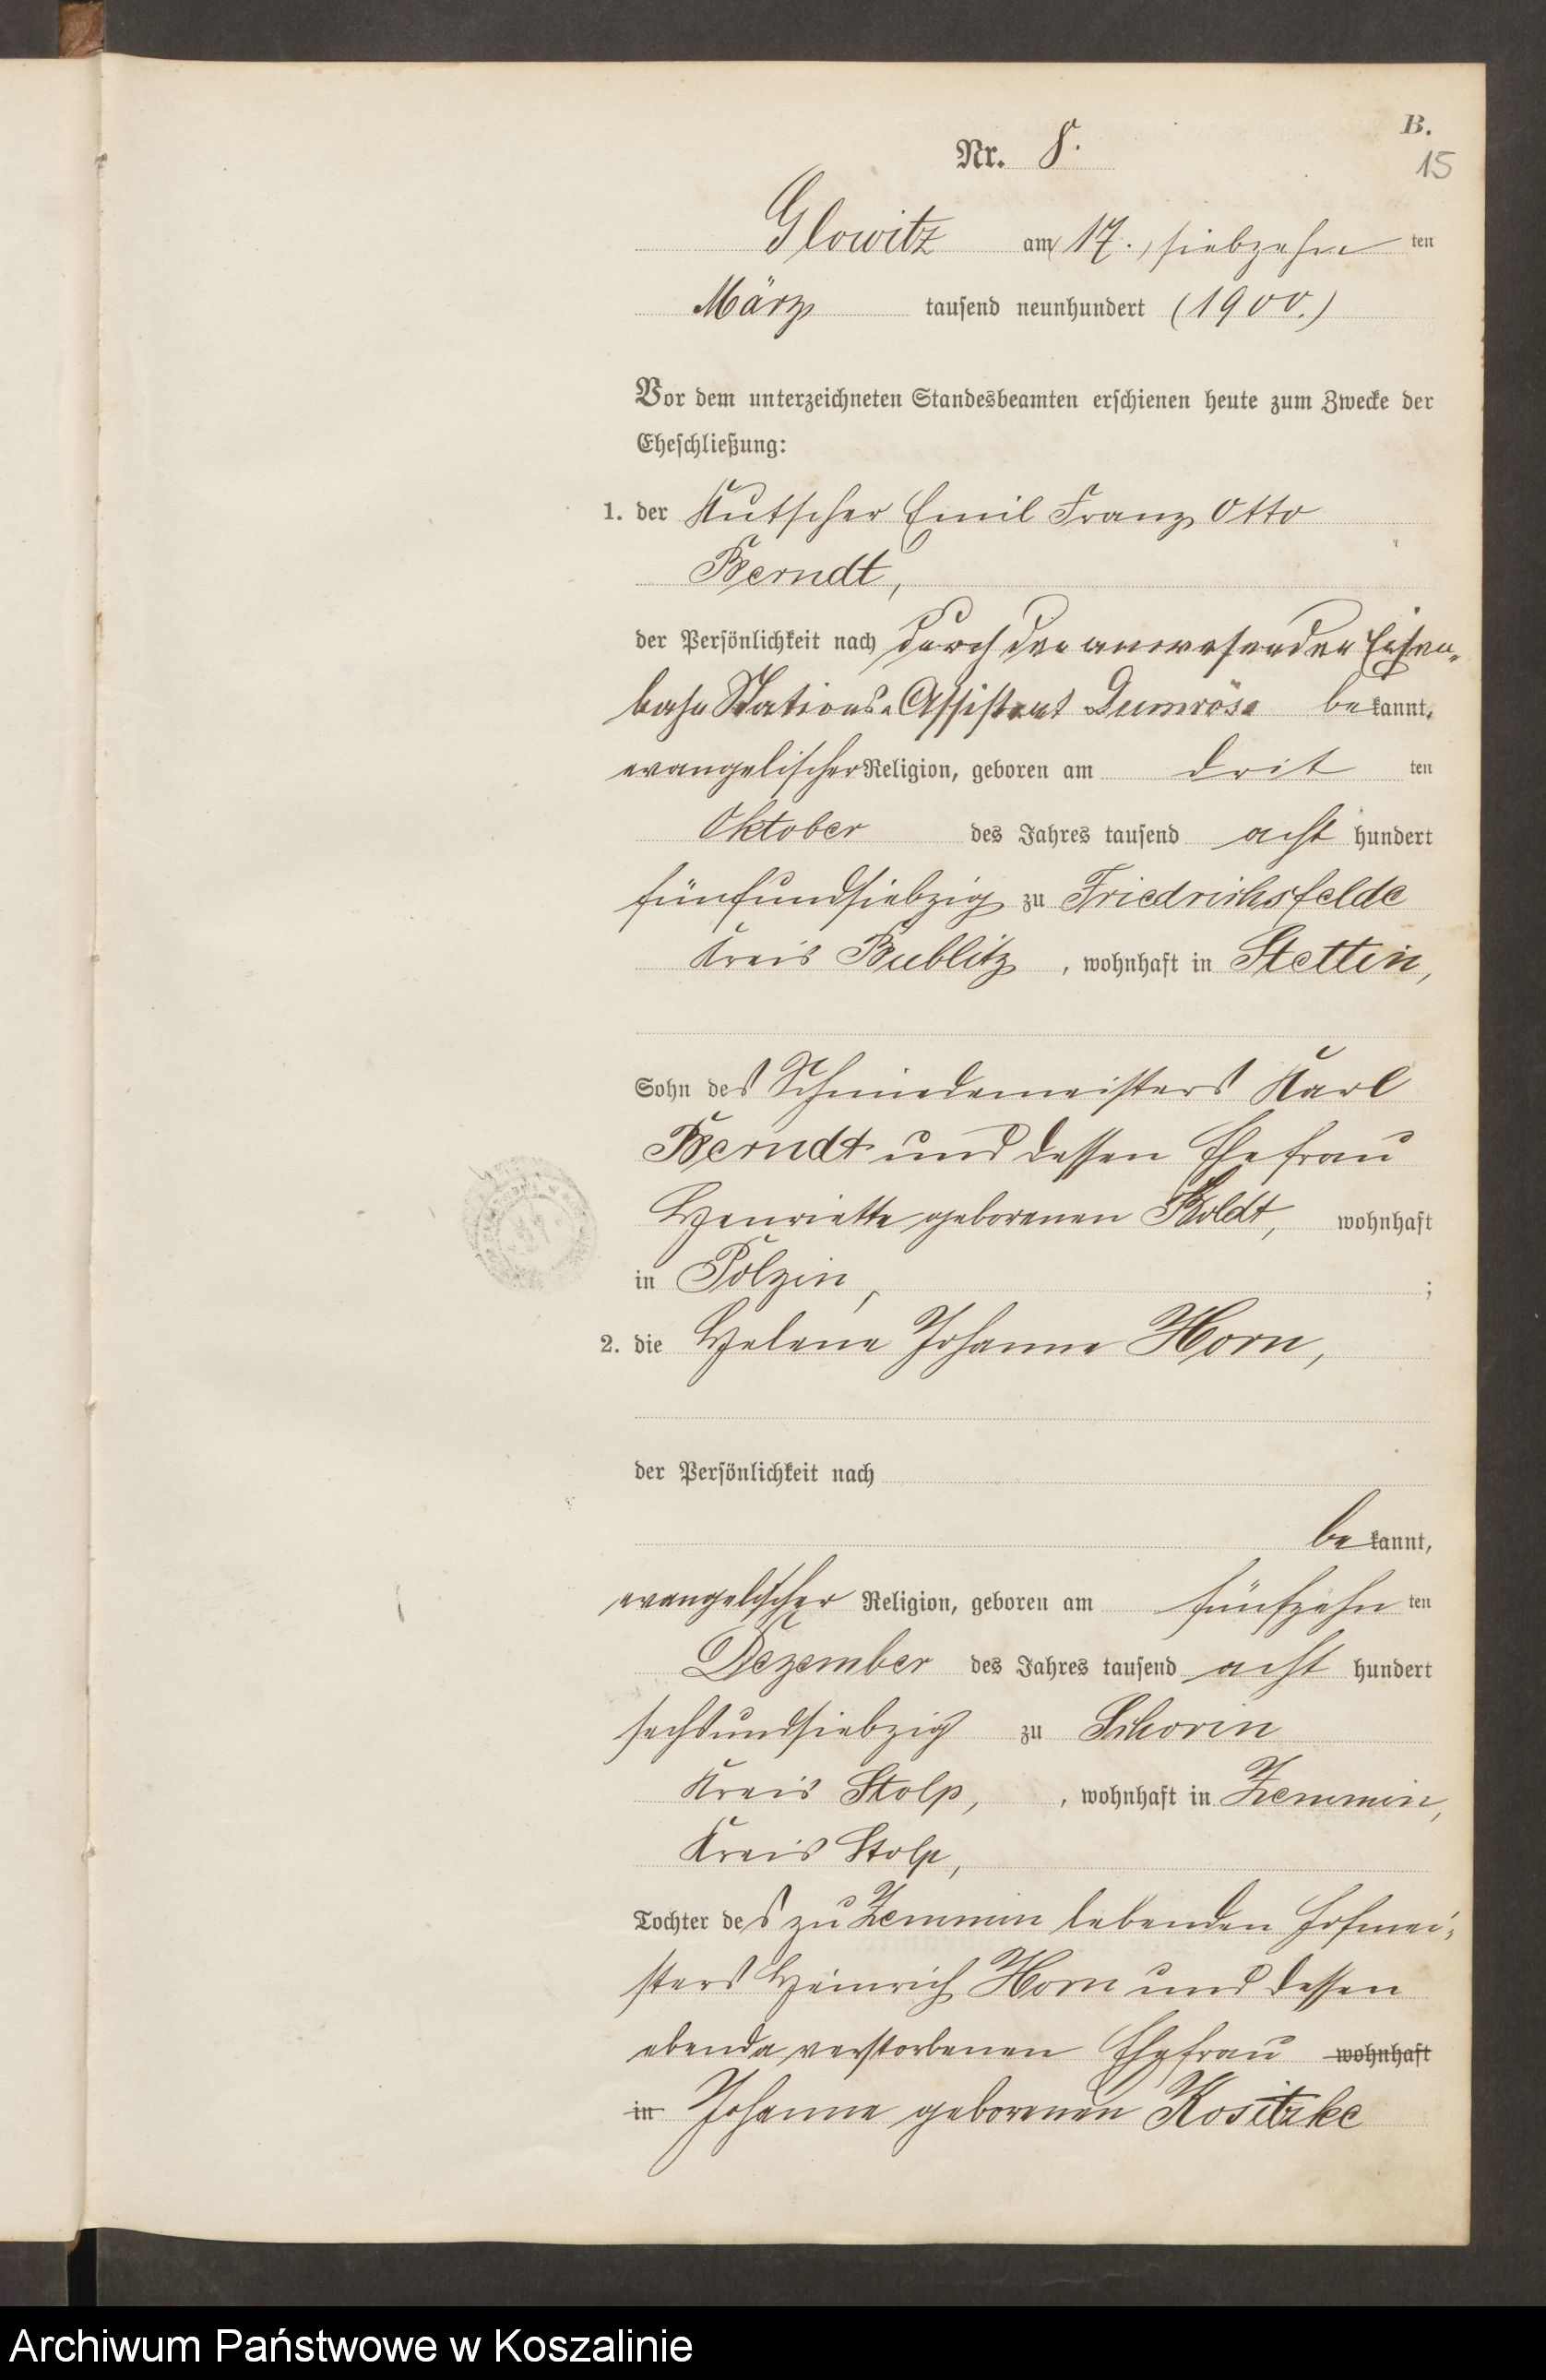 B.
15
Nr. 8.
Glowitz am 17., siebzehn ten
März tausend neunhundert (1900.)
Vor dem unterzeichneten Standesbeamten erschienen heute zum Zwecke der
Eheschließung:
1. der Kutscher Emil Franz Otto
Berndt,
der Persönlichkeit nach durch den anwesenden Eisen-
bahn Stations-Assistent Dumröse bekannt,
evangelischer Religion, geboren am drit ten
Oktober des Jahres tausend acht hundert
fünfundsiebzig zu Friedrichsfelde
Kreis Bublitz, wohnhaft in Stettin,
Sohn des Schmiedemeisters Karl
Berndt und dessen Ehefrau
Henriette geborenen Boldt, wohnhaft
in Polzin, ;
2. die Helene Johanne Horn,
der Persönlichkeit nach
bekannt,
evangelischer Religion, geboren am fünfzehn ten
Dezember des Jahres tausend acht hundert
sechsundsiebzig zu Schorin
Kreis Stolp, , wohnhaft in Zemmin,
Kreis Stolp,
Tochter des zu Zemmin lebenden Hofmei-
sters Heinrich Horn und dessen
ebenda verstorbenen Ehefrau wohnhaft
in Johanne geborenen Kositzke
Archiwum Państwowe w Koszalinie